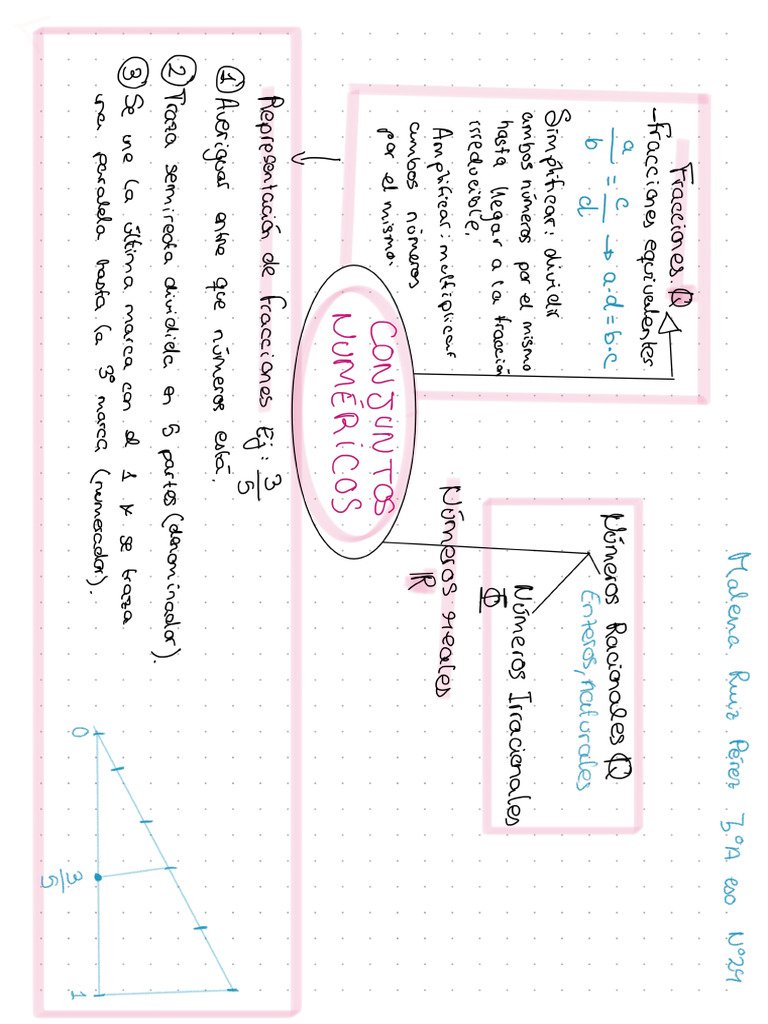 Malena Ruiz Pérez 3.ºA eso Nº24
Fracciones ℚ
-fracciones equivalentes
a/b = c/d → a·d=b·c
Simplificar: dividir
ambos números por el mismo
hasta llegar a la fracción
irreducible.
Amplificar: multiplicar
ambos números
por el mismo.
Números Racionales ℚ
Enteros, naturales
Números Irracionales
𝕀
Números reales
ℝ
CONJUNTOS
NUMÉRICOS
Representación de fracciones Ej: 3/5
① Averiguar entre que números está.
② Traza semirecta dividida en 5 partes (denominador).
③ Se une la última marca con el 1 y se traza
una paralela hasta la 3ª marca (numerador).
0
3/5
1